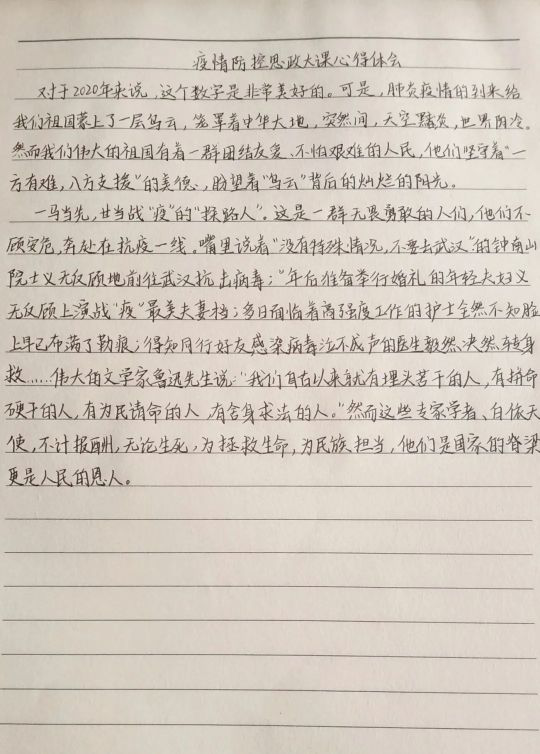 疫情防控思政大课心得体会
对于2020年来说，这个数字是非常美好的。可是，肺炎疫情的到来给
我们祖国蒙上了一层乌云，笼罩着中华大地，突然间，天空黯然，世界阴冷。
然而我们伟大的祖国有着一群团结友爱、不怕艰难的人民，他们坚守着“一
方有难，八方支援”的美德，盼望着“乌云”背后的灿烂的阳光。
一马当先，甘当战“疫”的“探路人”。这是一群无畏勇敢的人们，他们不
顾安危，奔赴在抗疫一线。嘴里说着“没有特殊情况，不要去武汉”的钟南山
院士义无反顾地前往武汉抗击病毒；“年后准备举行婚礼的年轻夫妇义
无反顾上演战“疫”最美夫妻档；多日面临着高强度工作的护士全然不知脸
上早已布满了勒痕；得知同行好友感染病毒泣不成声的医生毅然决然转身
救……伟大的文学家鲁迅先生说：“我们自古以来就有埋头苦干的人，有拼命
硬干的人，有为民请命的人，有舍身求法的人。”然而这些专家学者、白衣天
使，不计报酬，无论生死，为拯救生命，为民族担当，他们是国家的脊梁
更是人民的恩人。